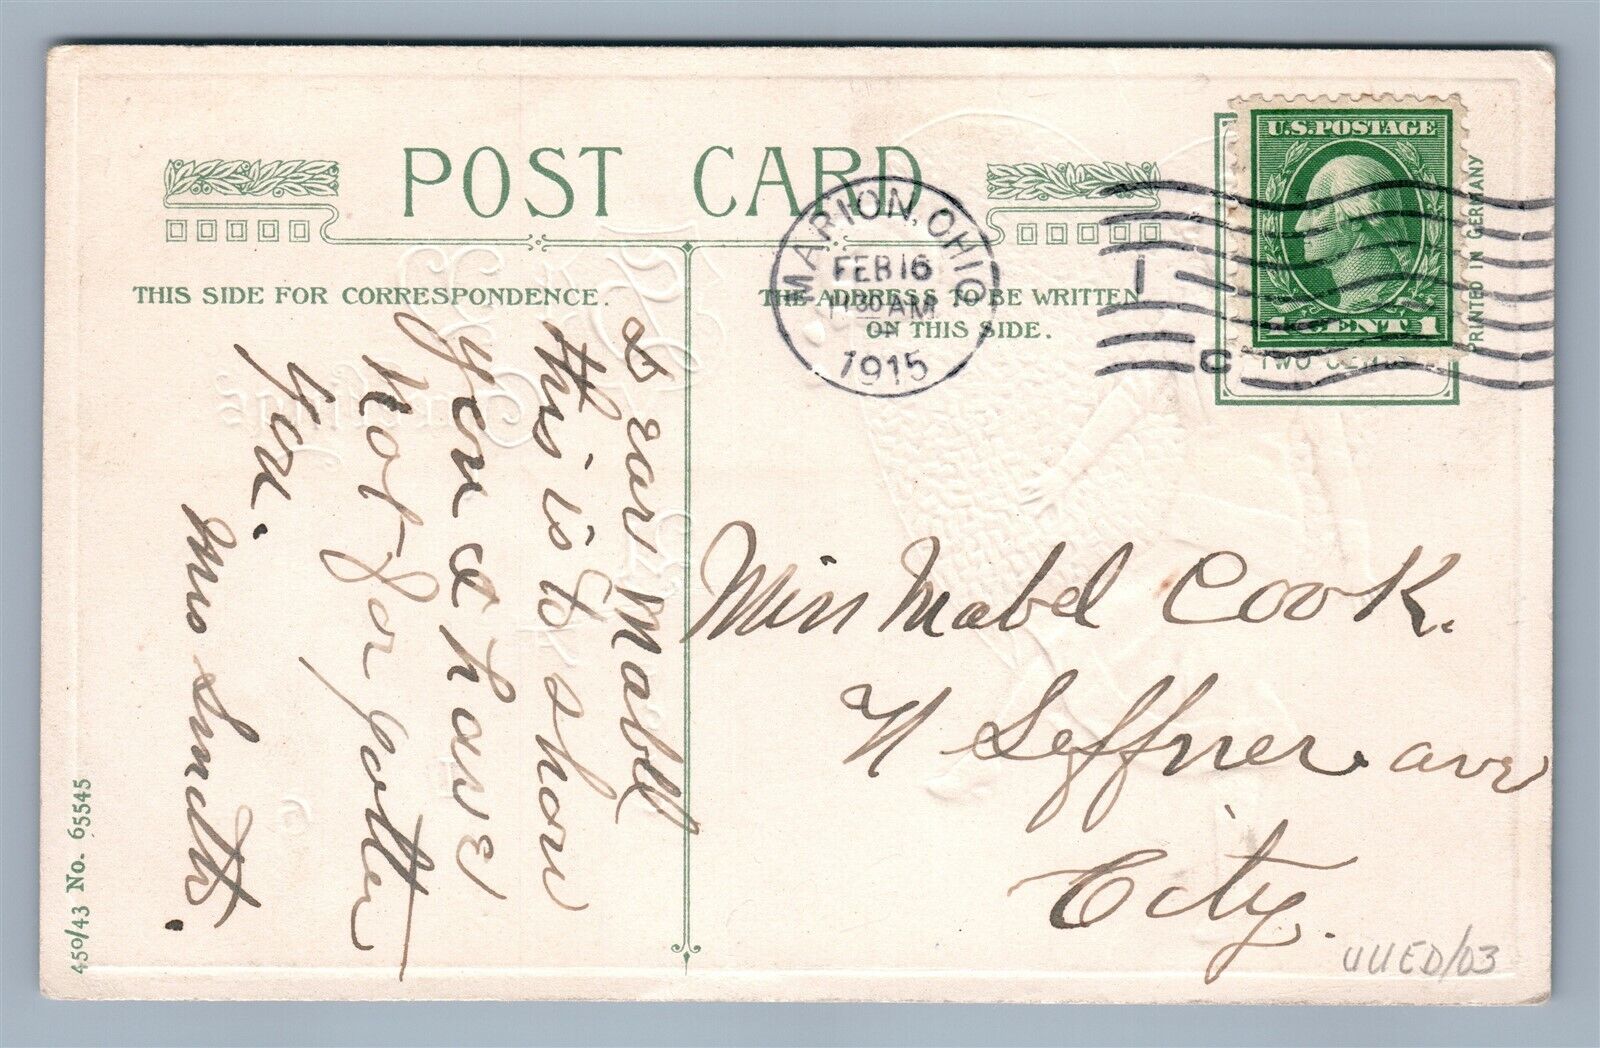 POST CARD
THIS SIDE FOR CORRESPONDENCE.
THE ADDRESS TO BE WRITTEN
ON THIS SIDE.
MARION, OHIO
FEB 16
11 30 AM
1915
1
C
U.S. POSTAGE
1 CENT 1
TWO CENTS
PRINTED IN GERMANY
Dear Mabll
this is to show
you I have
Not forgotten
You.
Mrs Smith.
Miss Mabel Cook.
N Seffner ave
City.
450/43 No. 65545
UUED/03